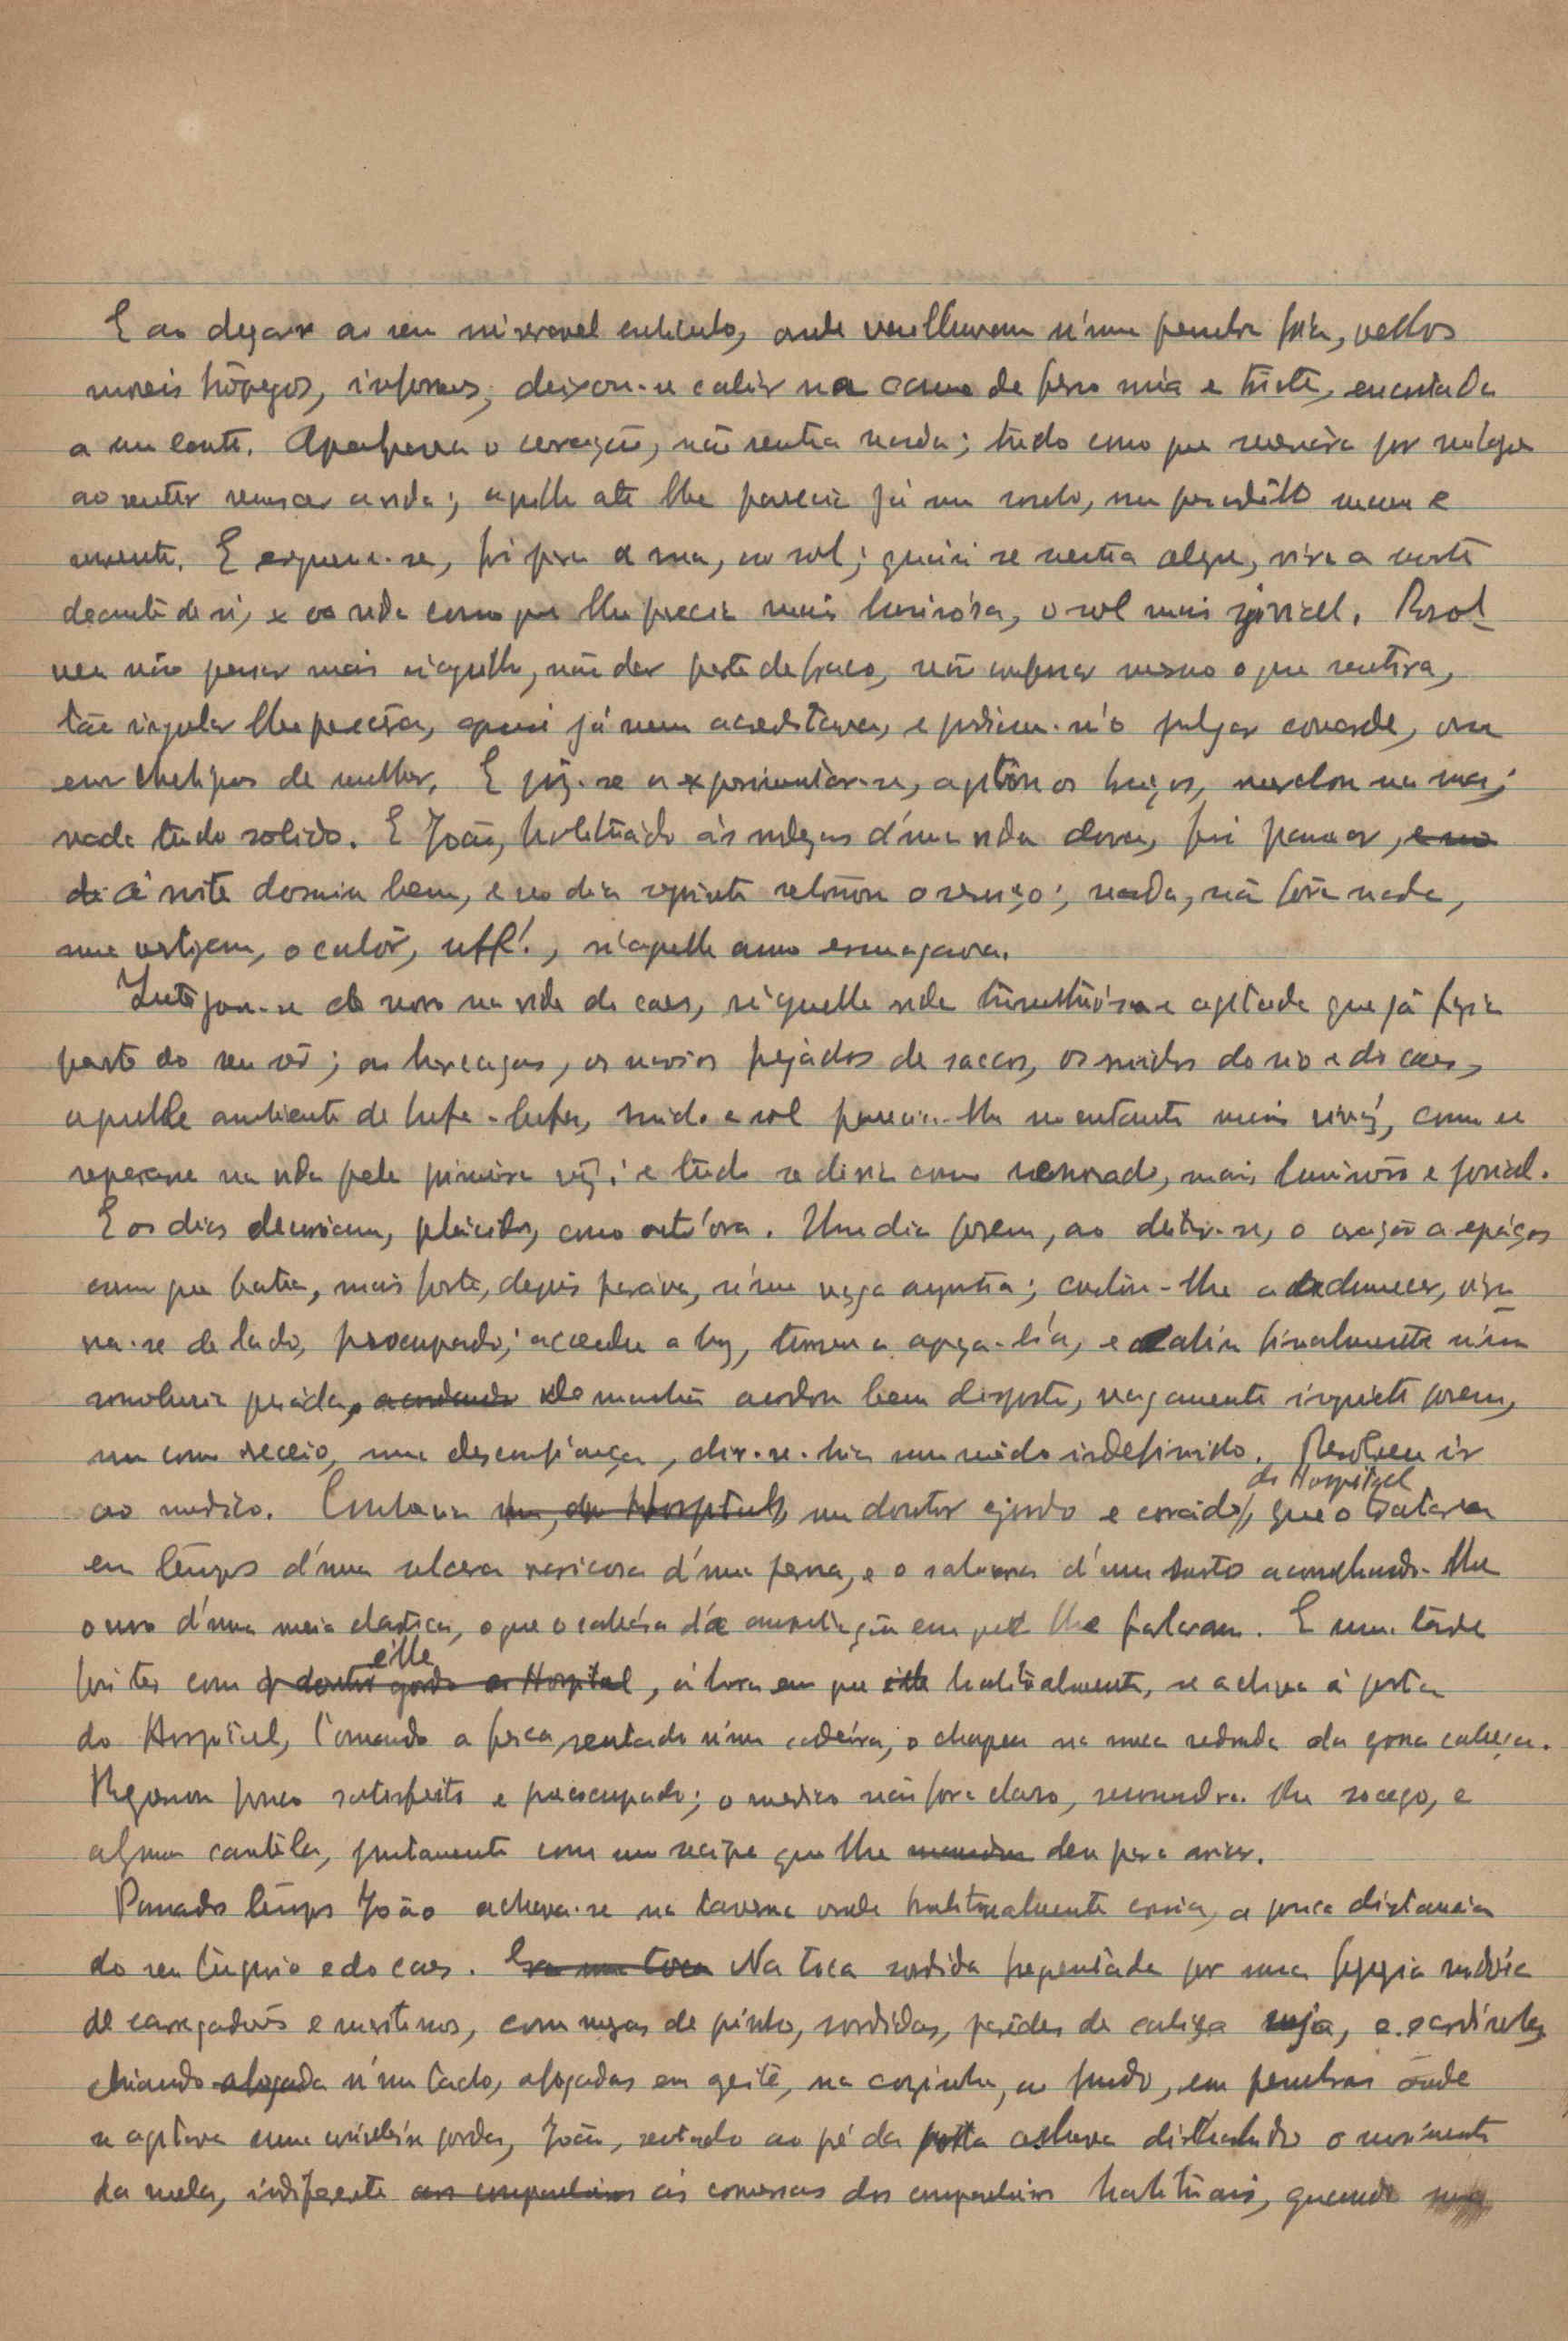 E ao chegar ao seu miseravel cubiculo, onde vermelhavam n'uma penumbra fria, velhos
moveis trôpegos, informes, deixou-se cahir na cama de ferro núa e triste, encostada
a um canto. Apalpava o coração, não sentia nada; tudo como que serenára por milagre
ao sentir renascer a vida; aquillo até lhe parecia já um sonho, um pesadêllo
E ergueu-se, foi para a rua, ao sol; quasi se sentia alegre, vira a morte
deante de si, e a vida como que lhe parecia mais luminósa, o sol mais jovial. Resol-
veu não pensar mais n'aquillo, não dar parte de fraco, não confessar mesmo o que sentira,
tão singular lhe parecera, quasi já nem acreditava, e podiam-n'o julgar covarde, ou
com cheliques de mulher. E poz-se a experimentar-se, agitou os braços, marchou na rua;
nada tudo solido. E João, habituádo ás rudezas d'uma vida dura, foi passear, e no
di á noite dormiu bem, e no dia seguinte retomou o serviço; nada, não fôra nada,
uma vertigem, o calôr, uff!, n'aquelle anno esmagava.
Integrou-se de novo na vida do caes, n'aquella vida tumultuósa e agitada que já fazia
parte do seu sêr; as barcaças, os navios pejádos de saccos, os ruidos do rio e do caes,
aquelle ambiente de lufa-lufa, ruido e sol parecia-lhe no entanto mais vivaz, como se
reparasse na vida pela primeira vez; e tudo se diria como renovado, mais luminoso e jovial.
E os dias decorriam, plácidos, como outr'ora. Um dia porem, ao deitar-se, o coração a espaços
como que batia, mais forte, depois parava, n'uma vaga angustia; custou-lhe a adormecer, vira-
va-se de lado, preocupado; accendeu a luz, tornou a apaga-l'a, e cahiu finalmente n'uma
somnolencia pesáda, acordando De manhã acordou bem disposto, vagamente inquieto porem,
um como receio, uma desconfiança, dir-se-hia um mêdo indefinido. Resolveu ir
do Hospital
ao medico. Conhecia um, do Hospital, um doutor gordo e corádo, que o tratára
em têmpos d'uma ulcera varicosa d'uma perna, e o salvára d'um susto aconselhando-lhe
o uso d'uma meia elastica, o que o salvára d'a amputação em que lhe falaram. E uma tarde
elle
foi ter com o doutor gordo ao Hospital, á hora em que elle habitualmente, se achava á porta
do Hospital, tomando a fresca, sentado n'uma cadeira, o chapeu na nuca redonda da grossa cabeça.
Regressou pouco satisfeito e preoccupado; o medico não fora claro, recomendára-lhe socego, e
alguma cautéla, juntamente com um recipe que lhe mandou deu para aviar.
Passado têmpo João achava-se na taverna onde habitualmente comia, a pouca distancia
do seu tugurio e do caes. Era uma toca Na toca sordida frequentada por uma freguezia rude
de carregadores e maritimos, com mezas de pinho, sordidas, parêdes de caliça suja, e sardinhas
chiando afogada n'um tacho, afogadas em azeite, na cozinha, ao fundo, em penumbras onde
se agitava uma cozinheira gorda, João, sentado ao pé da porta achava distrahido o movimento
da ruela, indifferente aos companheiros ás conversas dos companheiros habituais, quando